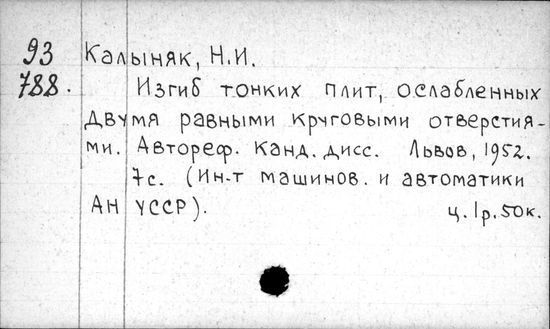 93 Калыняк, Н.И.
788. Изгиб тонких плит, ослабленных
двумя равными круговыми отверстия-
ми. Автореф. канд. дисс. Львов, 1952.
7с. (Ин-т машинов. и автоматики
АН УССР). ц. 1р. 50к.